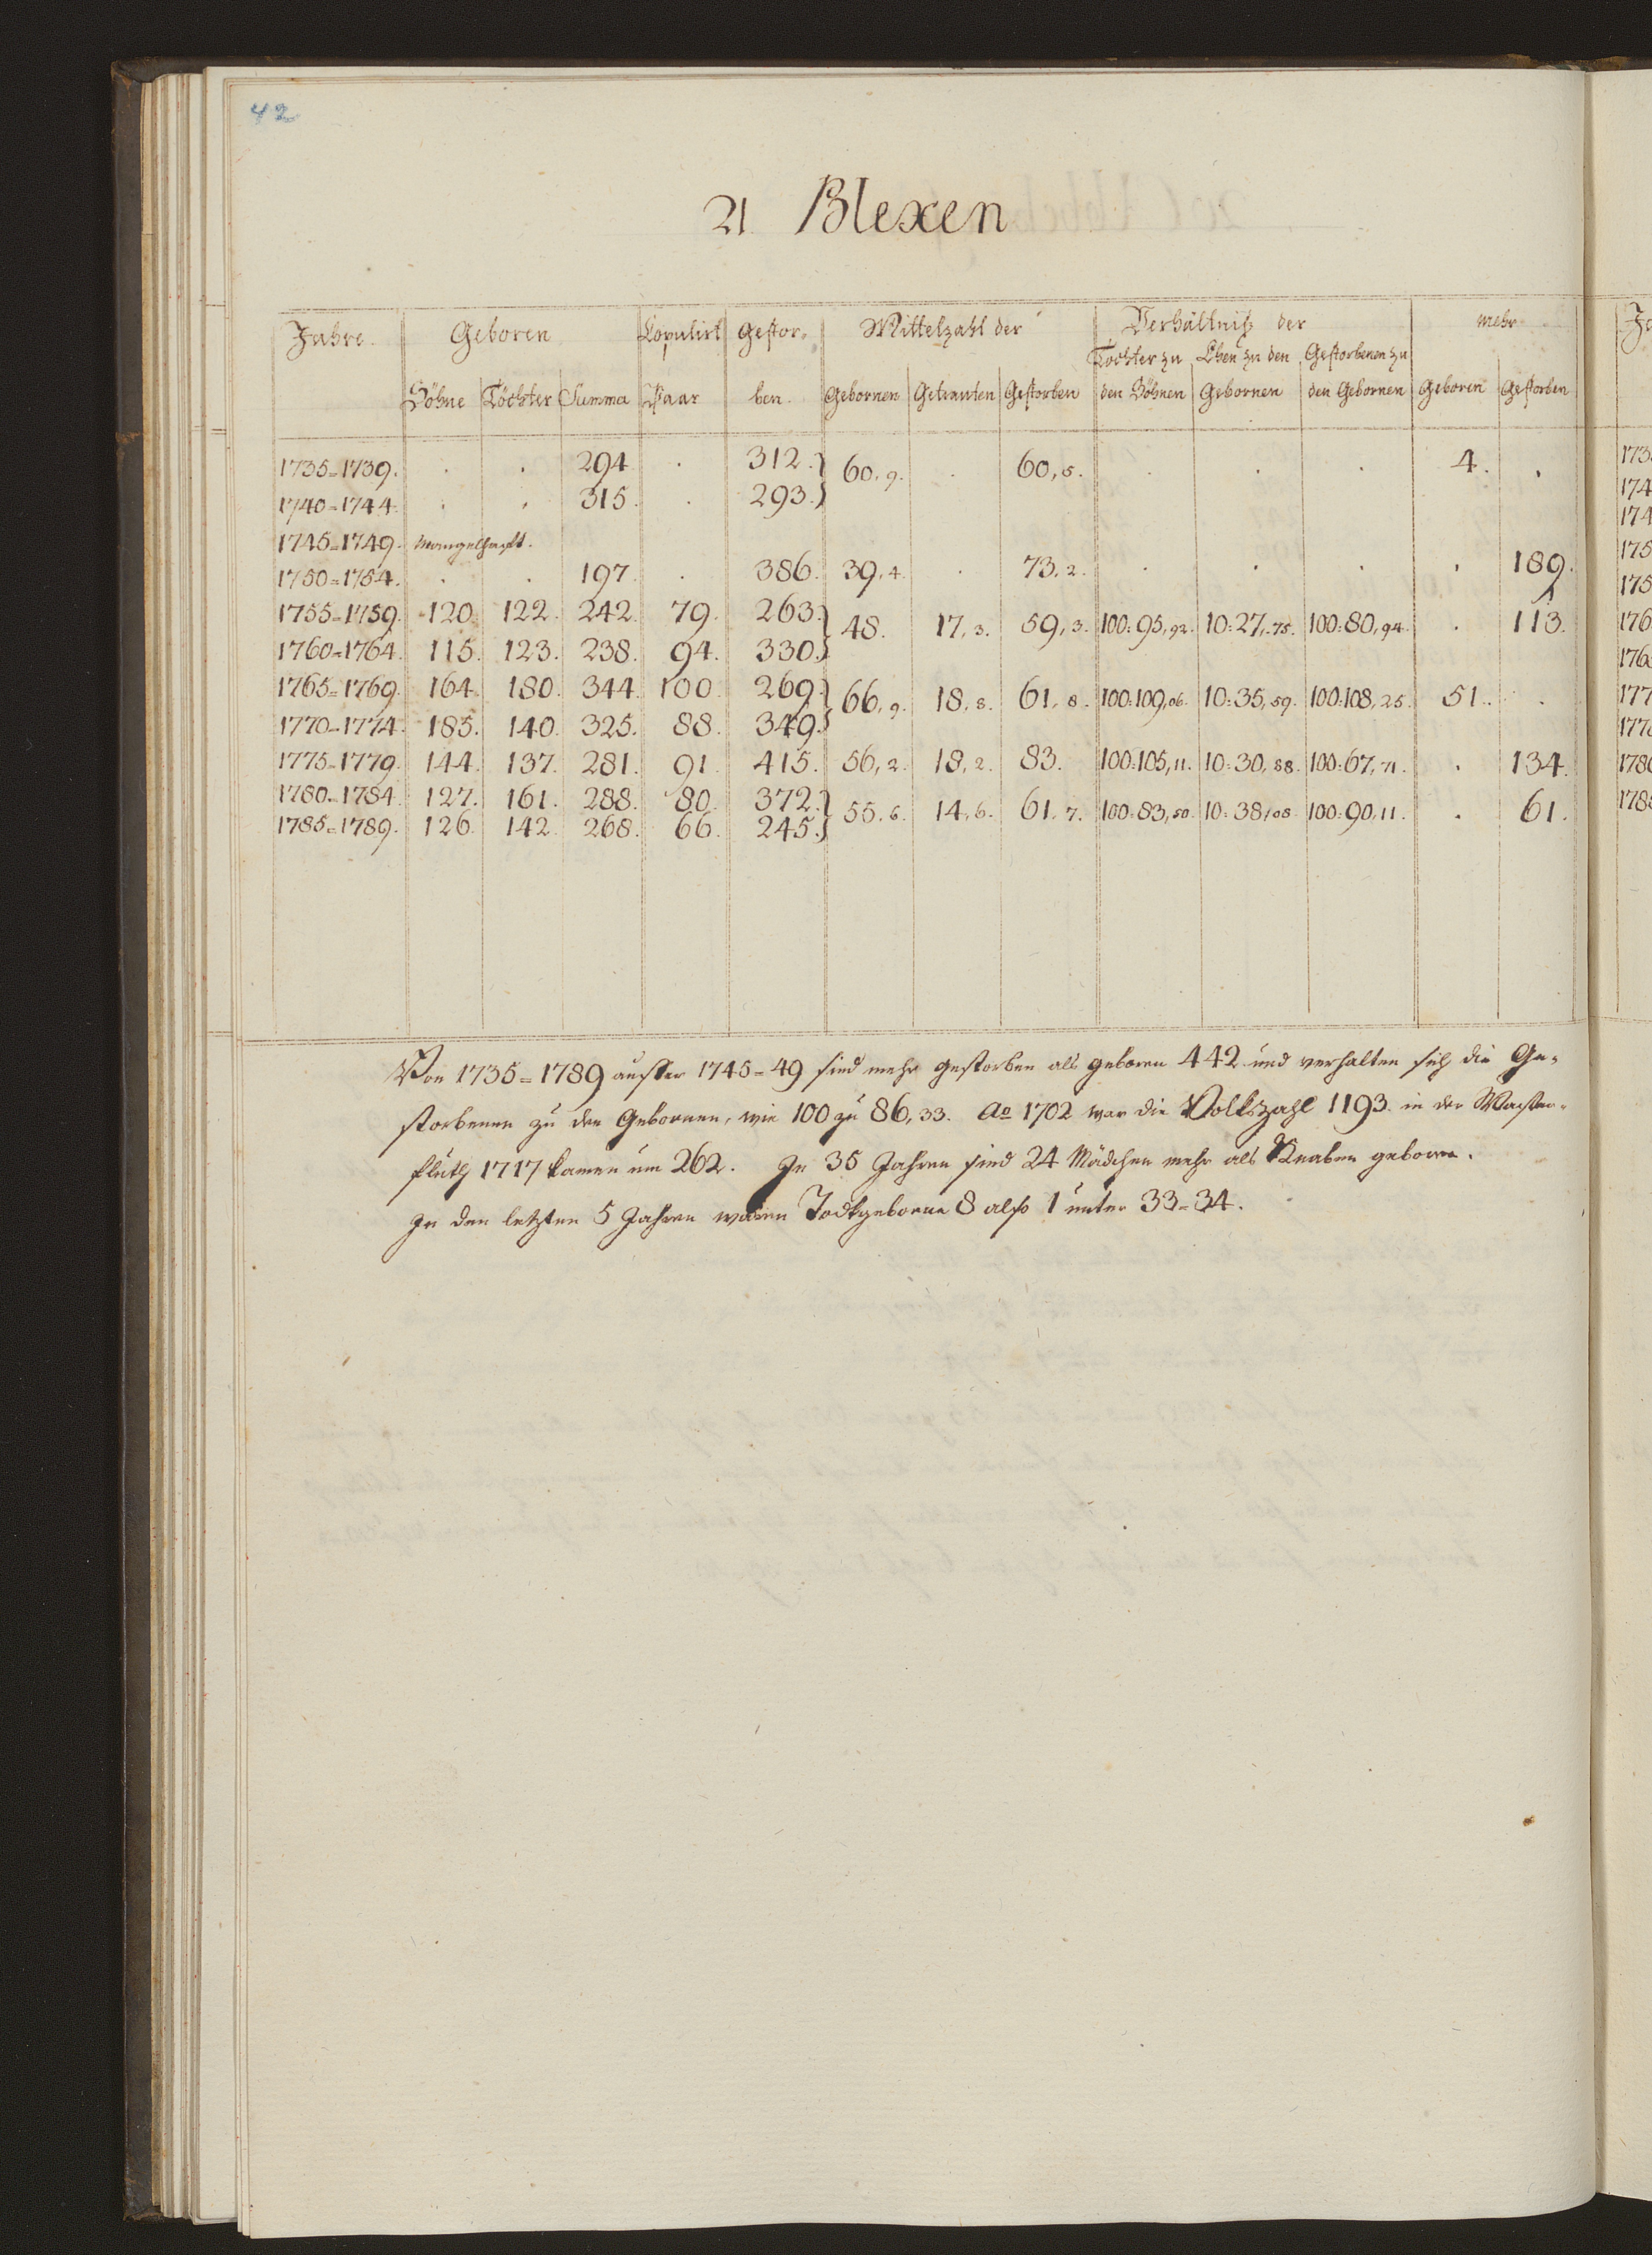 42
21 Blexen
Jahre. Geboren Copulirt Gestor- Mittelzahl der Verhältniß der mehr
Töchter zu Ehen zu den Gestorbenen zu
Söhne Töchter Summa Paar ben. Gebornen Getrauten Gestorben den Söhnen Gebornen den Gebornen Geboren Gestorben
1735=1739. . . 294. . 312. 60,9. . 60,5. . . . 4. .
1740=1744. . . 315. . 293.
1745=1749. Mangelhaft.
1750=1754. . . 197. . 386. 39,4. . 73,2. . . . . 189.
1755=1759. 120. 122. 242. 79. 263. 48. 17,3. 59,3. 100:95,92. 10:27,75. 100:80,94. . 113.
1760=1764. 115. 123. 238. 94. 330.
1765=1769. 164. 180. 344. 100. 269. 66,9. 18,8. 61,8. 100:109,06. 10:35,59. 100:108,25. 51. .
1770=1774. 185. 140. 325. 88. 349.
1775=1779. 144. 137. 281. 91. 415. 56,2. 18,2. 83. 100:105,11. 10:30,88. 100:67,71. . 134.
1780=1784. 127. 161. 288. 80. 372. 55,6. 14,6. 61,7. 100:83,50. 10:38,08. 100:90,11. . 61.
1785=1789. 126. 142. 268. 66. 245.
Von 1735=1789 ausser 1745=49 sind mehr gestorben als geboren 442 und verhalten sich die Ge-
storbenen zu den Gebornen, wie 100 zu 86,33. Ao 1702 war die Volkszahl 1193. in der Wasser-
fluth 1717 kamen um 262. In 35 Jahren sind 24 Mädchen mehr als Knaben geboren.
In den letzten 5 Jahren waren Todtgeborne 8 also 1 unter 33=34.